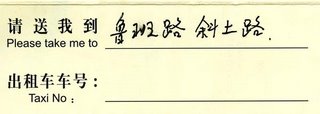 请送我到 鲁班路 斜土路.
Please take me to
出租车车号：
Taxi No：